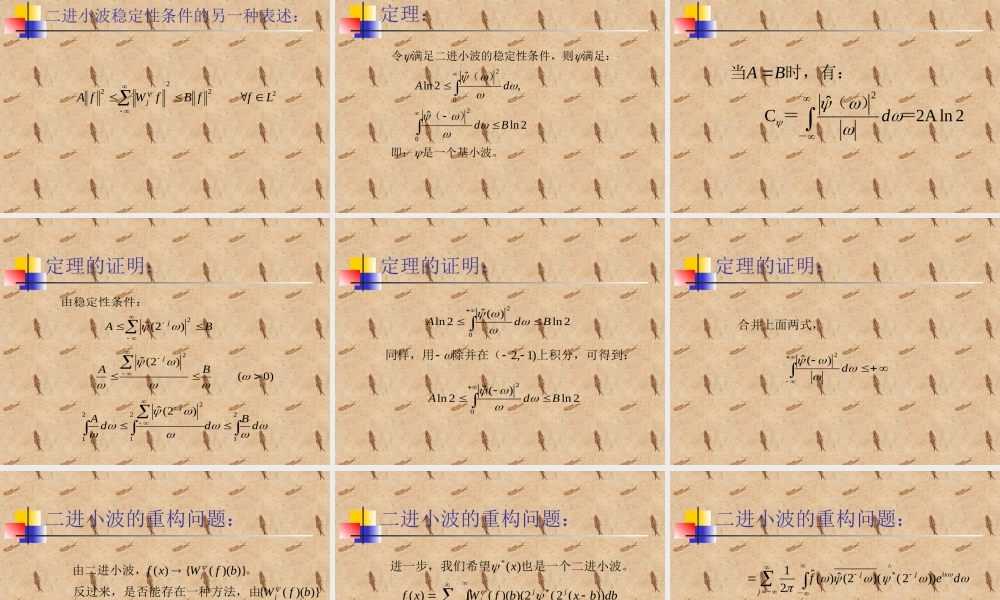 二进小波稳定性条件的另一种表述：
A‖f‖² ≤ ∑_{-∞}^{∞} ‖W_j^ψ f‖² ≤ B‖f‖² ∀f ∈ L²
定理：
令ψ满足二进小波的稳定性条件，则ψ满足：
A ln 2 ≤ ∫_0^∞ |ψ̂（ω）|²/ω dω,
∫_0^∞ |ψ̂（-ω）|²/ω dω ≤ B ln 2
即：ψ是一个基小波。
当A = B时，有：
C_ψ = ∫_{-∞}^∞ |ψ̂（ω）|²/|ω| dω = 2A ln 2
定理的证明：
由稳定性条件：
A ≤ ∑_{-∞}^∞ |ψ̂(2^{-j}ω)|² ≤ B
A/ω ≤ ∑_{-∞}^∞ |ψ̂(2^{-j}ω)|²/ω ≤ B/ω (ω > 0)
∫_1^2 A/ω dω ≤ ∫_1^2 ∑_{-∞}^∞ |ψ̂(2^{-j}ω)|²/ω dω ≤ ∫_1^2 B/ω dω
定理的证明：
A ln 2 ≤ ∫_0^{+∞} |ψ̂(ω)|²/ω dω ≤ B ln 2
同样，用-ω除并在（-2,-1)上积分，可得到：
A ln 2 ≤ ∫_0^{+∞} |ψ̂(-ω)|²/ω dω ≤ B ln 2
定理的证明：
合并上面两式，
∫_{-∞}^{+∞} |ψ̂(-ω)|²/|ω| dω ≤ +∞
二进小波的重构问题：
由二进小波，f(x) → {W_j^ψ(f)(b)}。
反过来，是否能存在一种方法，由{W_j^ψ(f)(b)}
二进小波的重构问题：
进一步，我们希望ψ*(x)也是一个二进小波。
f(x) = ∑ ∫ W_j^ψ(f)(b)(2^j ψ*(2^j(x-b))db
二进小波的重构问题：
= ∑_{j=-∞}^∞ 1/2π ∫_{-∞}^∞ f̂(ω)ψ̂(2^{-j}ω)(ψ*^(2^{-j}ω))e^{ixω}dω